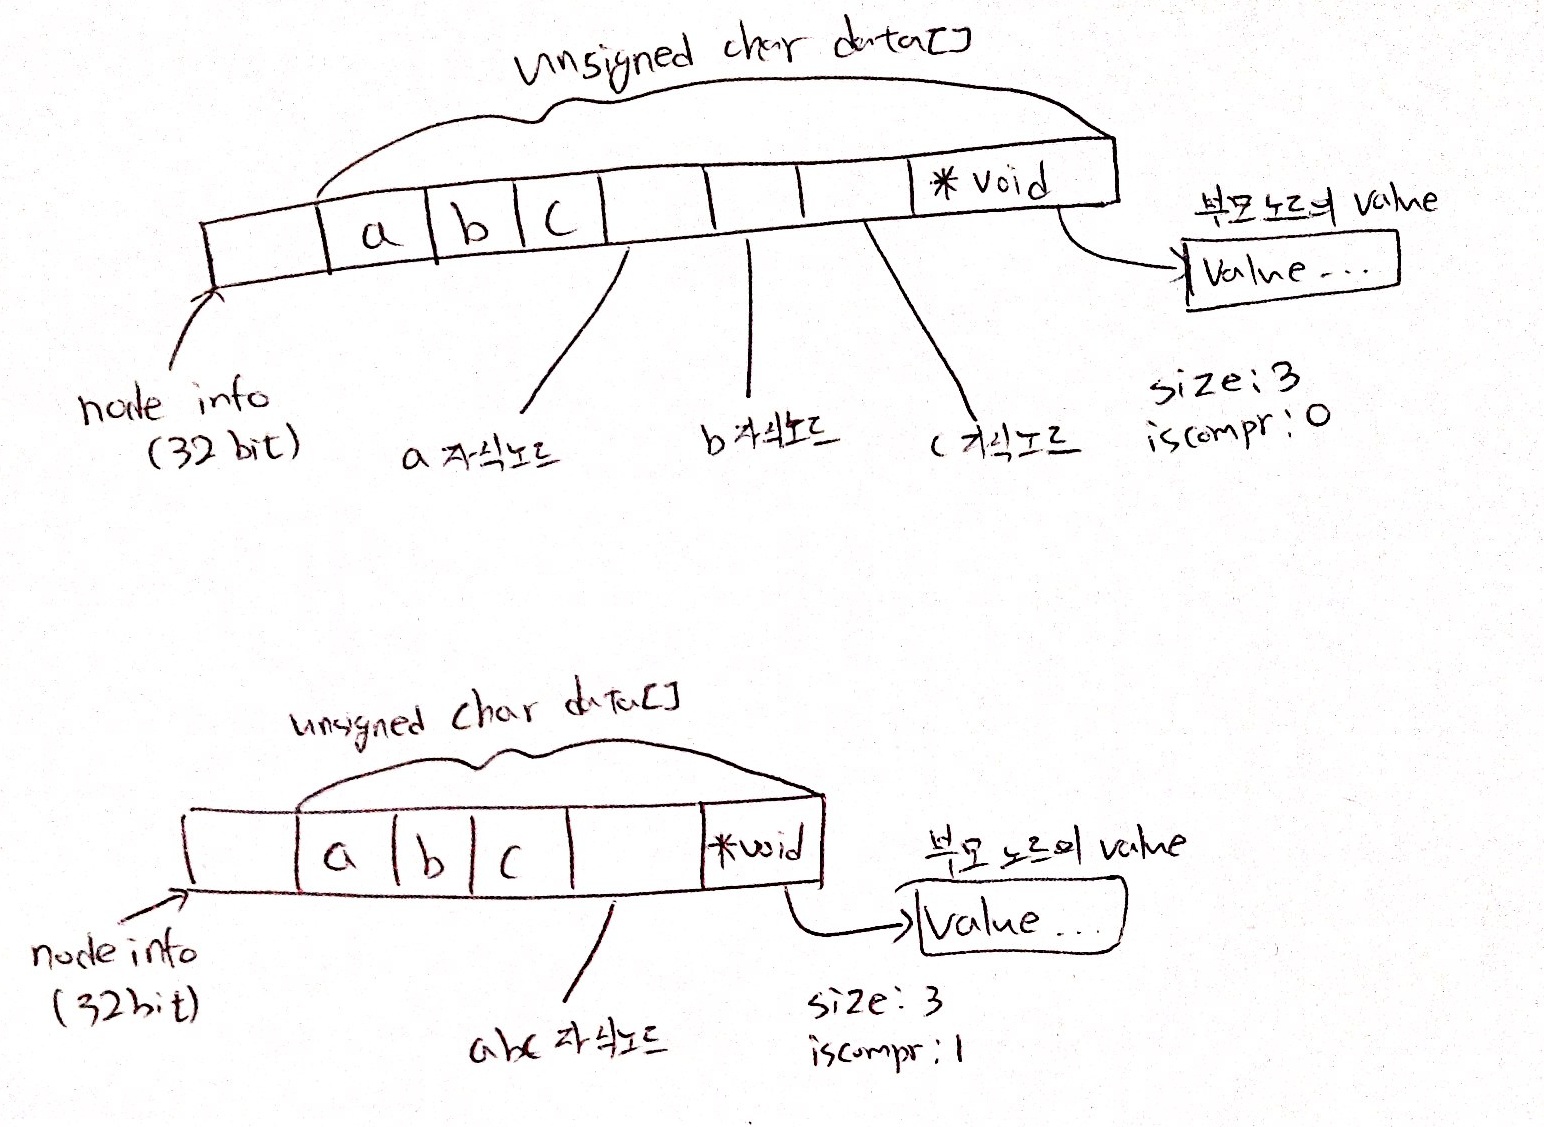 unsigned char data[]
a b c *void
부모 노드의 value
value...
node info
(32 bit)
a 자식노드
b 자식노드
c 자식노드
size: 3
iscompr: 0
unsigned char data[]
a b c *void
부모 노드의 value
value...
node info
(32bit)
abc 자식노드
size: 3
iscompr: 1